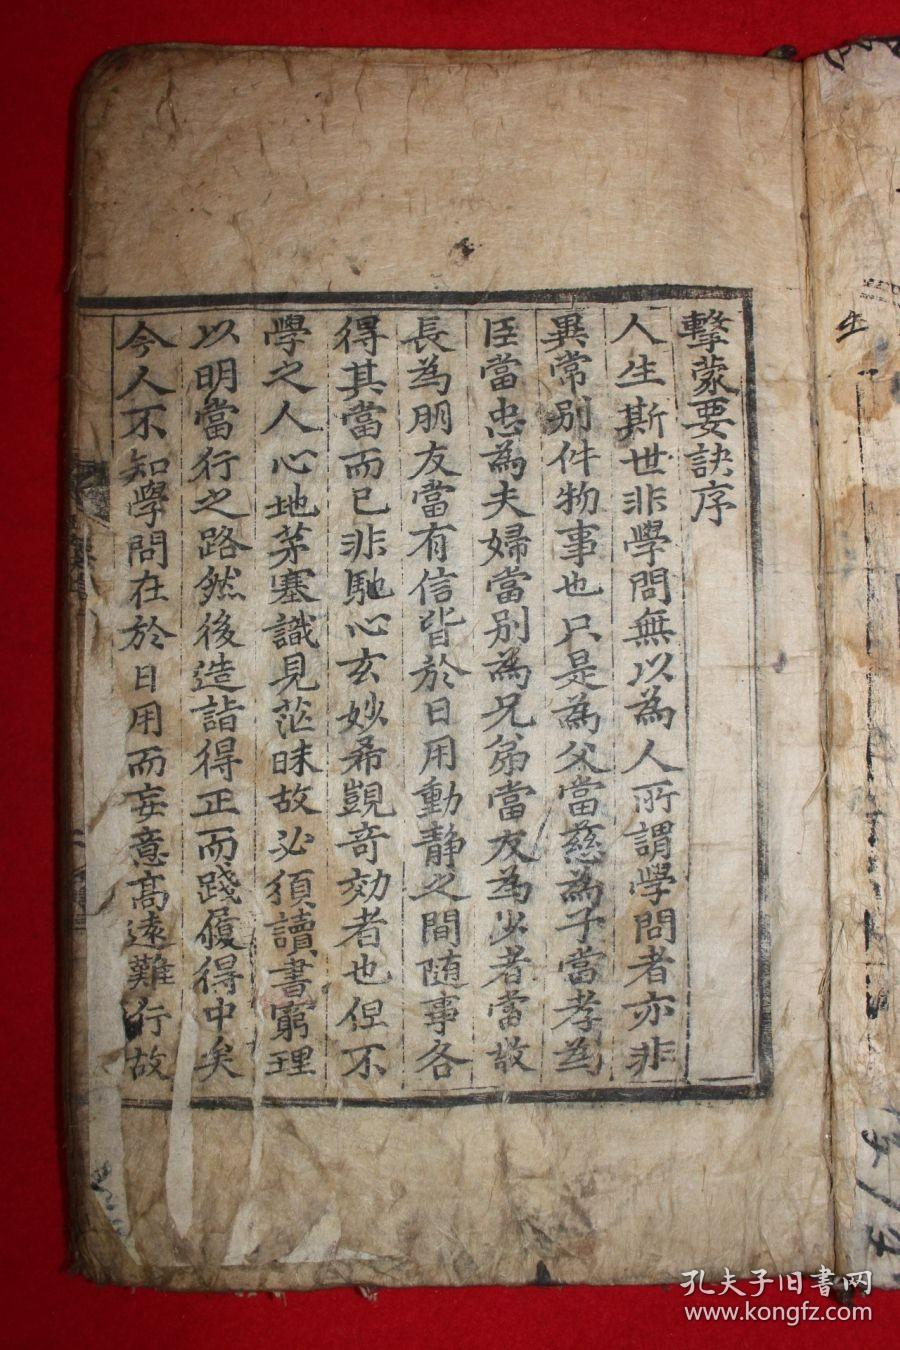 擊蒙要訣序
人生斯世非學問無以為人所謂學問者亦非
異常别件物事也只是為父當慈為子當孝為
臣當忠為夫婦當别為兄弟當友為少者當敬
長為朋友當有信皆於日用動静之間随事各
得其當而已非馳心玄妙希覬奇効者也但不
學之人心地茅塞識見茫昧故必須讀書窮理
以明當行之路然後造詣得正而踐履得中矣
今人不知學問在於日用而妄意髙遠難行故
孔夫子旧书网
www.kongfz.com